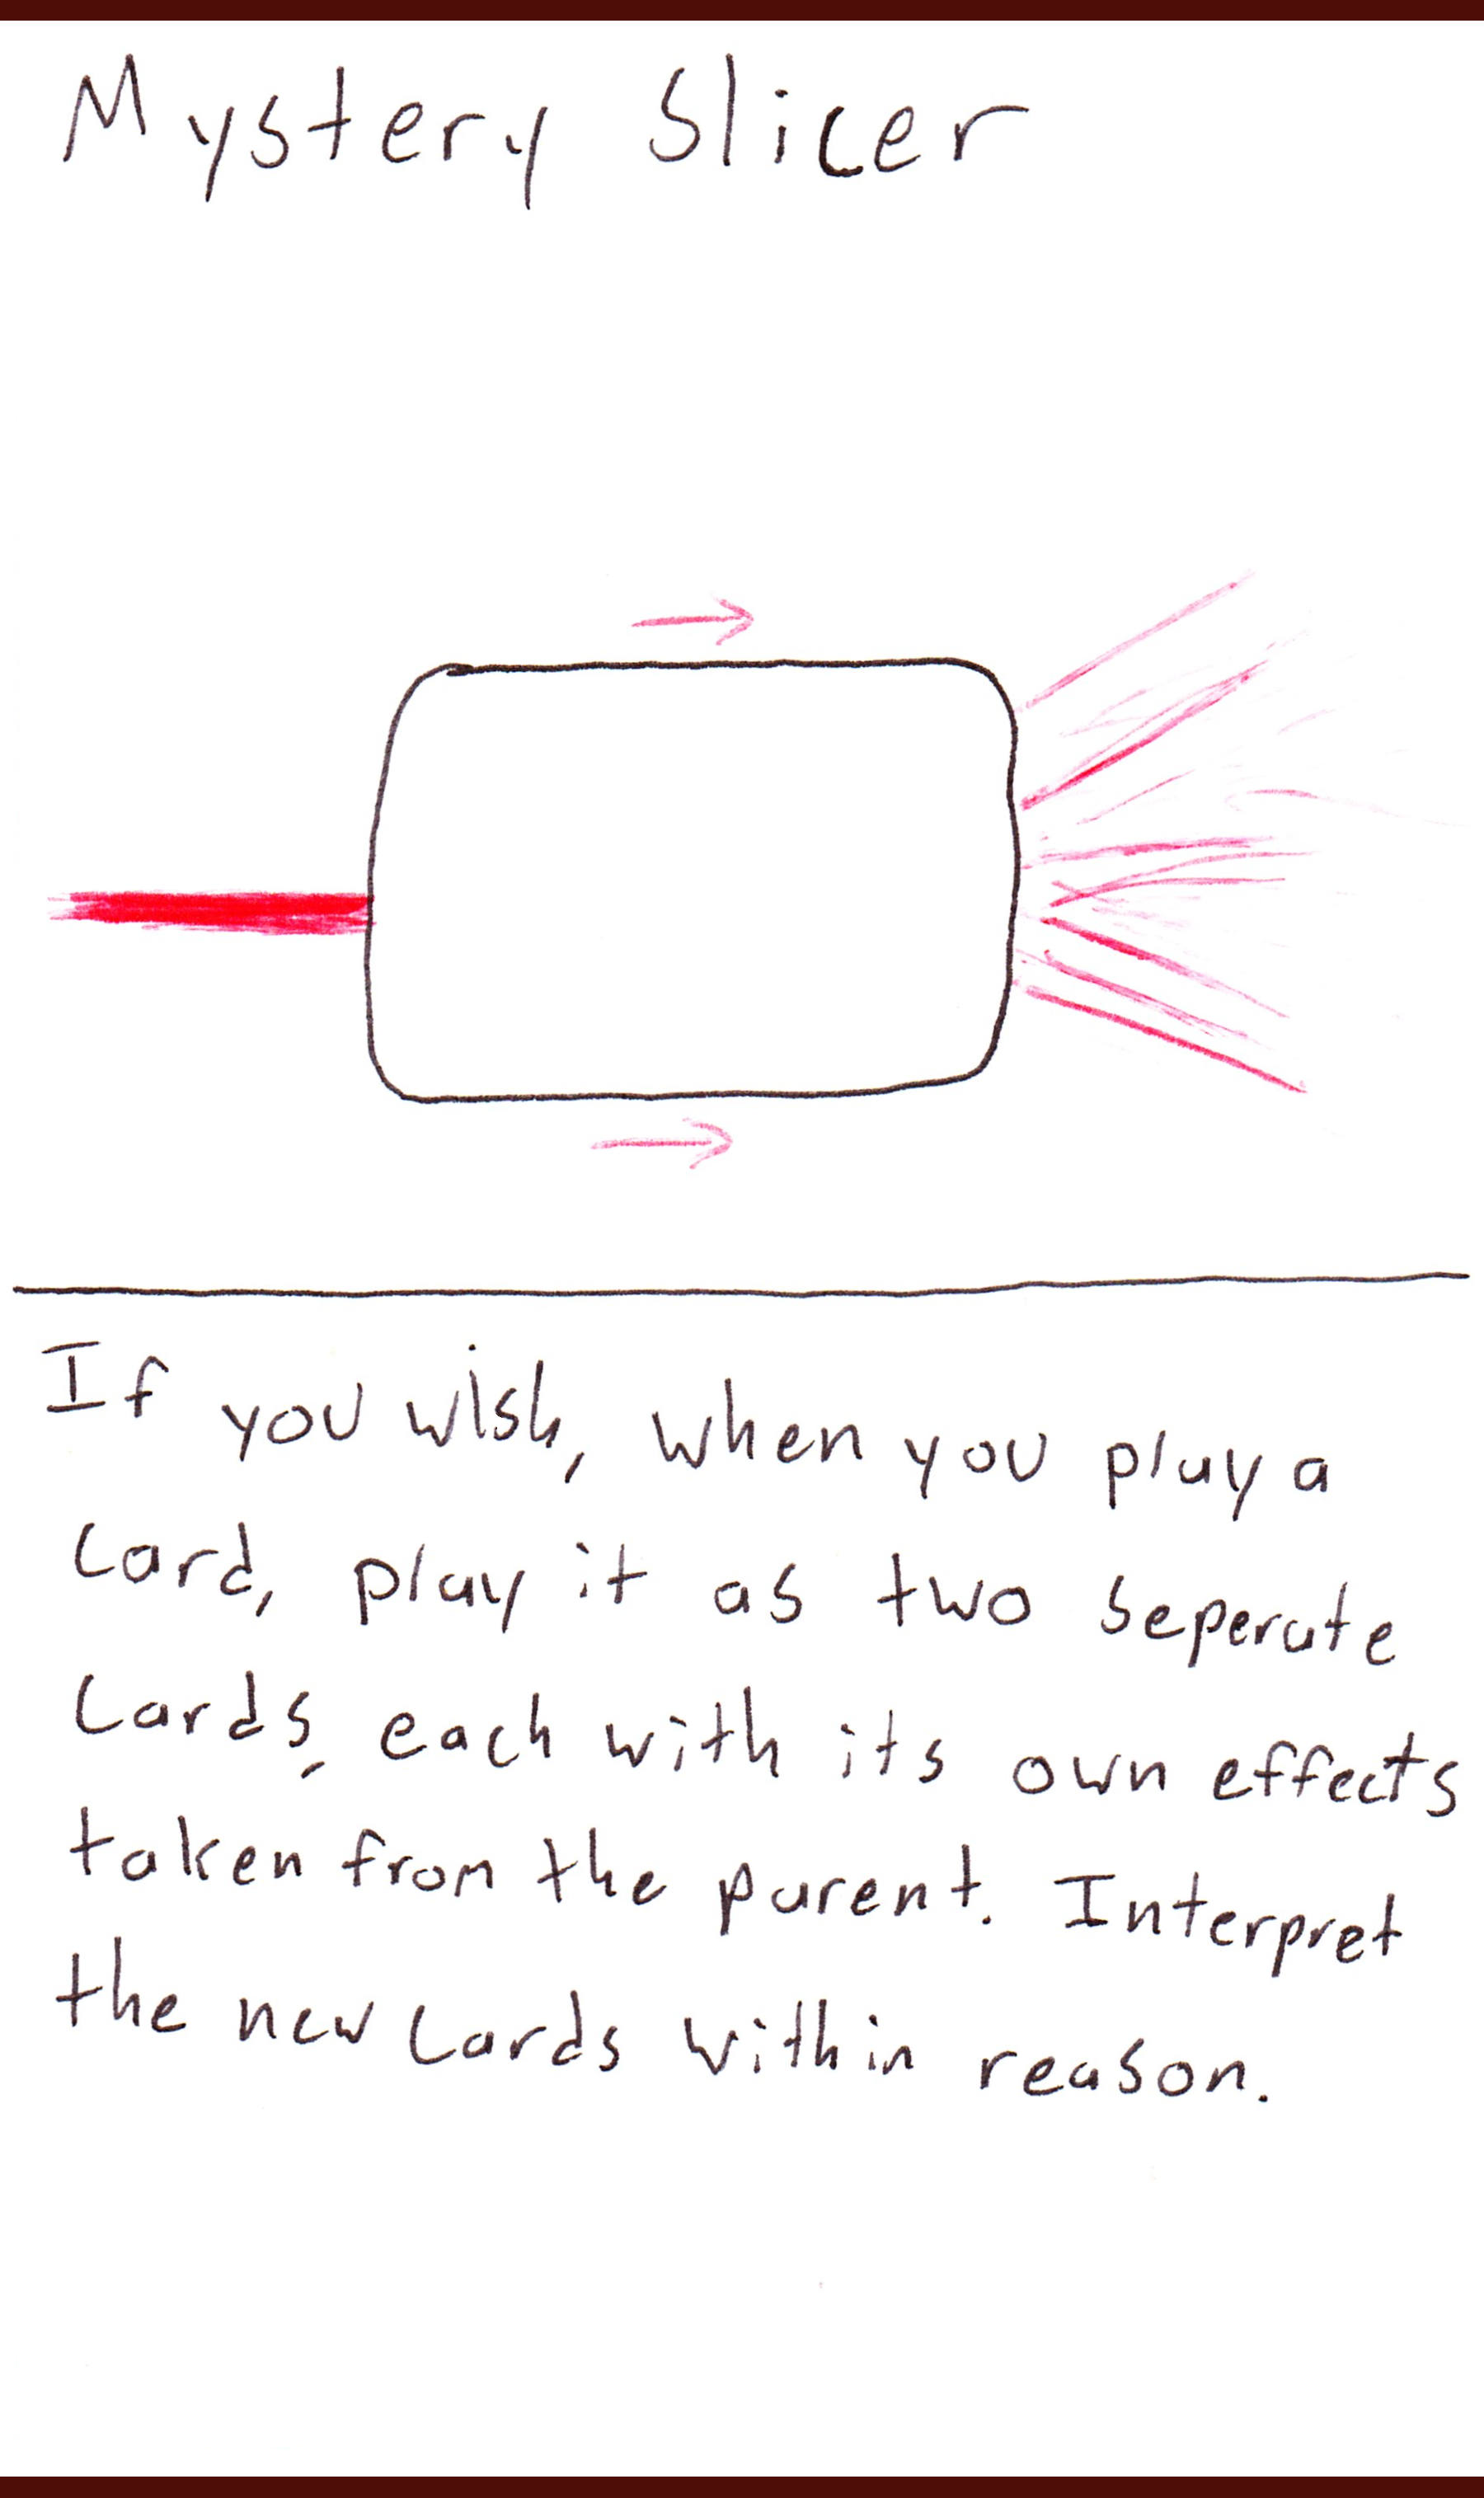 Mystery Slicer
If you wish, when you play a
card, play it as two seperate
cards, each with its own effects
taken from the parent. Interpret
the new cards within reason.